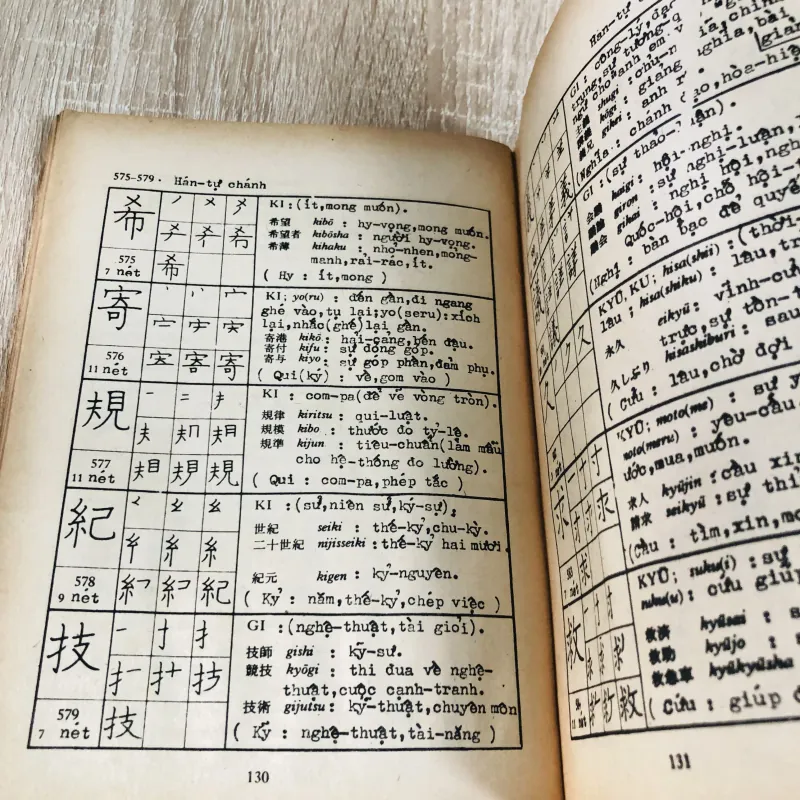 575-579 . Hán-tự chánh
希
575
7 nét
KI :(ít,mong muốn).
希望 kibō : hy-vọng,mong muốn.
希望者 kibōsha : người hy-vọng.
希薄 kihaku : nhỏ-nhen,mỏng-
manh,rải-rác,ít.
( Hy : ít,mong )
寄
576
11 nét
KI; yo(ru) : đến gần,đi ngang
ghé vào,tụ lại;yo(seru):xích
lại,nhấc(ghế)lại gần.
寄港 kikō : hải-cảng,bến đậu.
寄付 kifu : sự đóng góp.
寄与 kiyo : sự góp phần,đảm phụ.
( Quí(ký) : về,gom vào )
規
577
11 nét
KI : com-pa(để vẽ vòng tròn).
規律 kiritsu : qui-luật.
規模 kibo : thước đo tỷ-lệ.
規準 kijun : tiêu-chuẩn(làm mẫu
cho hệ-thống đo lường).
( Qui : com-pa,phép tắc )
紀
578
9 nét
KI : (sử,niên sử,ký-sự).
世紀 seiki : thế-kỷ,chu-kỳ.
二十世紀 nijisseiki : thế-kỷ hai mươi.
紀元 kigen : kỷ-nguyên.
( Kỷ : năm,thế-kỷ,chép việc )
技
579
7 nét
GI :(nghệ-thuật,tài giỏi).
技師 gishi : kỹ-sư.
競技 kyōgi : thi đua về nghệ-
thuật,cuộc cạnh-tranh.
技術 gijutsu : kỹ-thuật,chuyên môn
( Kỹ : nghệ-thuật,tài-năng )
130
GI : công-lý,đạo
chủ-n
shugi
giảng
anh r
gikei
(Nghĩa : chánh
GI : (sự thảo-luận).
kaigi : hội-nghị.
giron : sự nghị-luận,
gikai : nghị hội,
Quốc-hội,chỗ hội-
(Nghị : bàn bạc để quyế
KYŪ, KU ; hisa(shii) : (thời-
lâu ; hisa(shiku) : lâu,
永久 eikyū : vĩnh-cửu
trực,sự tồn-
久しぶり hisashiburi : sau
( Cửu : lâu,chờ đợi
求
KYŪ; moto(me) : sự y
moto(meru) : yêu-cầu,
ước,mua,muốn.
求人 kyūjin : cầu xin
請求 seikyū : sự thỉ
(Cầu : tìm,xin,mo
救
11 nét
KYŪ; suku(i) : sự
suku(u) : cứu giúp
救済 kyūsai :
救助 kyūjo : s
救急車 kyūkyūsha
( Cứu : giúp đ
131